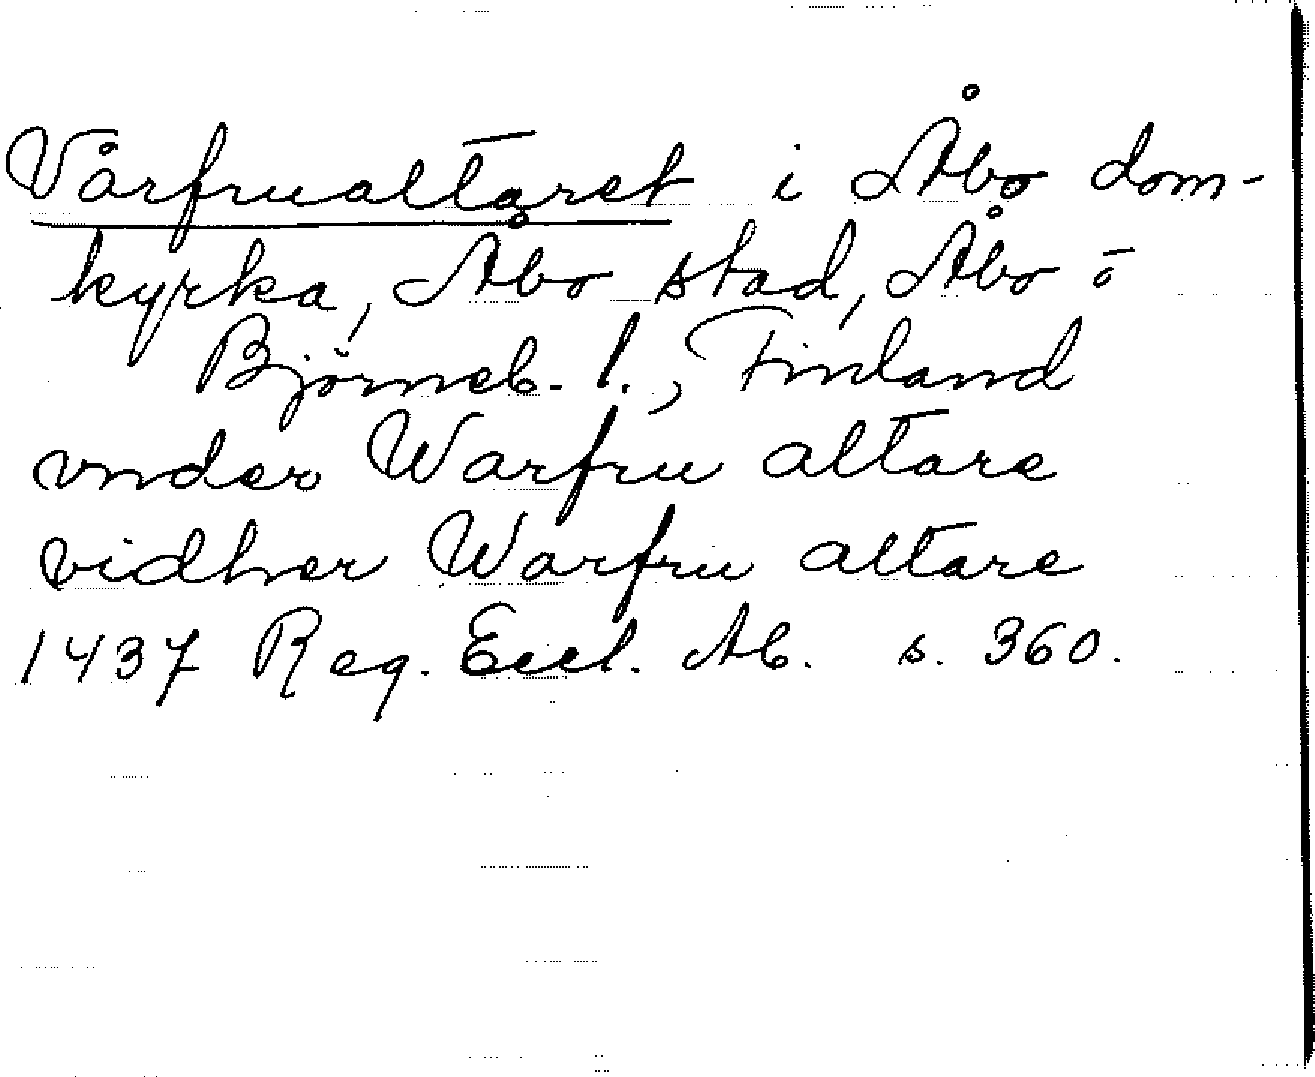 Vårfrualtaret i Åbo dom-
kyrka, Åbo stad, Åbo o
Björneb. l., Finland
vnder Warfru altare
vidher Warfru altare
1437 Reg. Eccl. Ab. s. 360.